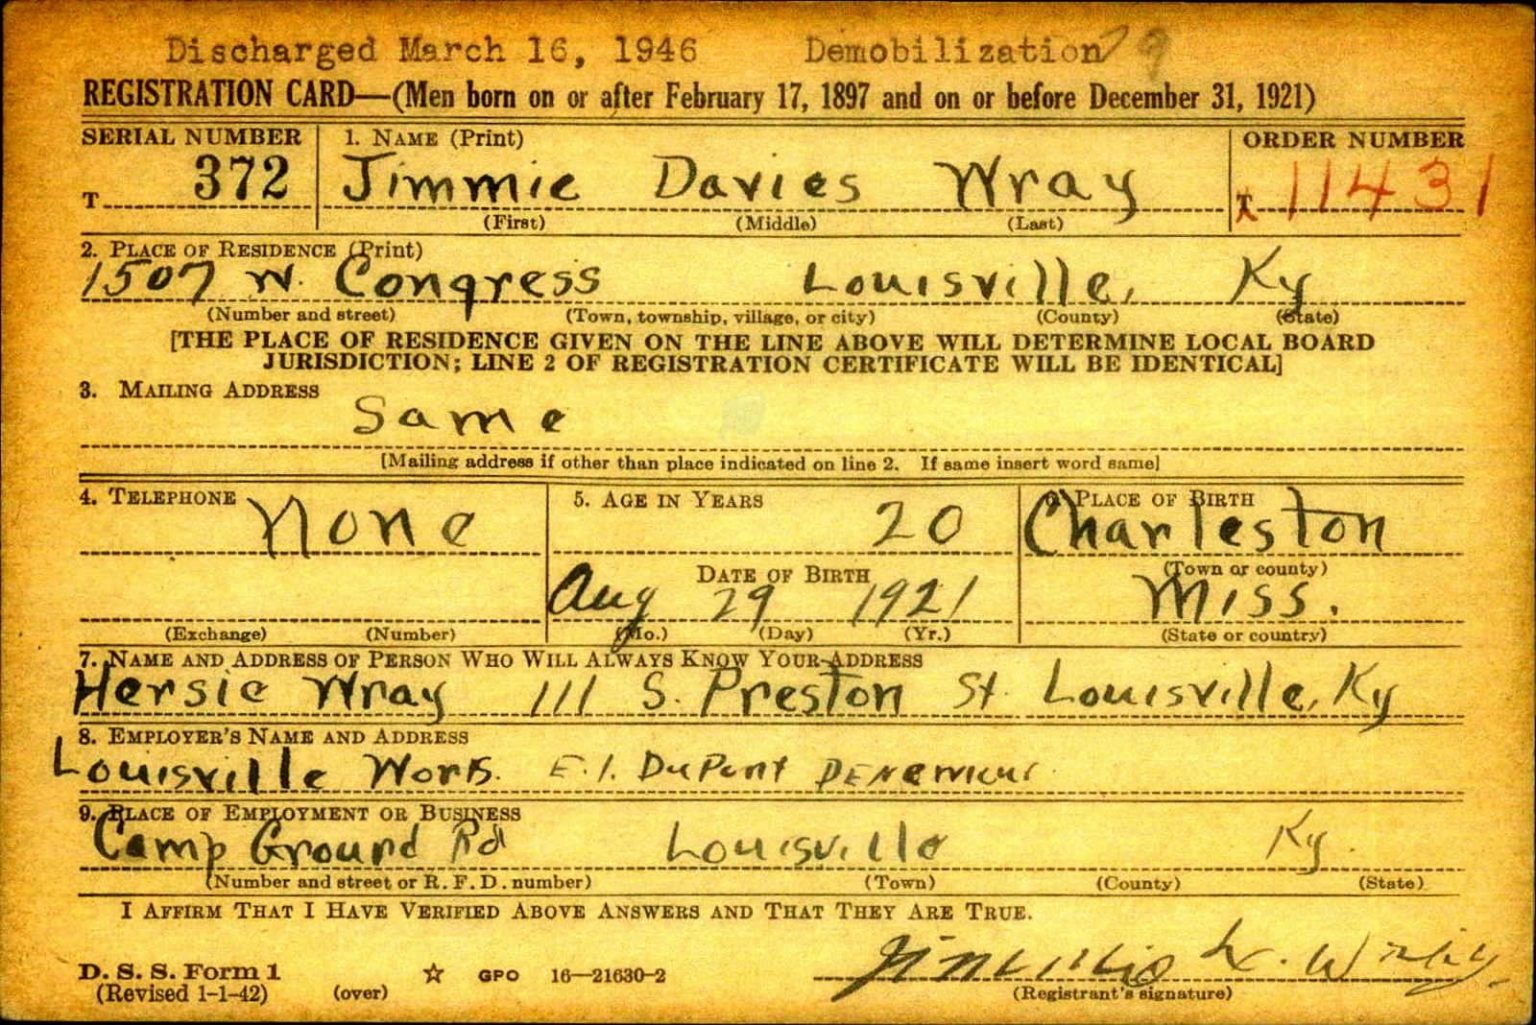 Discharged March 16, 1946 Demobilization
REGISTRATION CARD—(Men born on or after February 17, 1897 and on or before December 31, 1921)
SERIAL NUMBER 1. NAME (Print) ORDER NUMBER
T 372 Jimmie Davies Wray T 11431
(First) (Middle) (Last)
2. PLACE OF RESIDENCE (Print)
1507 W. Congress Louisville, Ky
(Number and street) (Town, township, village, or city) (County) (State)
[THE PLACE OF RESIDENCE GIVEN ON THE LINE ABOVE WILL DETERMINE LOCAL BOARD
JURISDICTION; LINE 2 OF REGISTRATION CERTIFICATE WILL BE IDENTICAL]
3. MAILING ADDRESS
Same
[Mailing address if other than place indicated on line 2. If same insert word same]
4. TELEPHONE 5. AGE IN YEARS 6. PLACE OF BIRTH
None 20 Charleston
DATE OF BIRTH (Town or county)
Aug 29 1921 Miss.
(Exchange) (Number) (Mo.) (Day) (Yr.) (State or country)
7. NAME AND ADDRESS OF PERSON WHO WILL ALWAYS KNOW YOUR ADDRESS
Hersie Wray 111 S. Preston St. Louisville, Ky
8. EMPLOYER'S NAME AND ADDRESS
Louisville Works. E. I. DuPont
9. PLACE OF EMPLOYMENT OR BUSINESS
Camp Ground Rd Louisville Ky.
(Number and street or R. F. D. number) (Town) (County) (State)
I AFFIRM THAT I HAVE VERIFIED ABOVE ANSWERS AND THAT THEY ARE TRUE.
D. S. S. Form 1 GPO 16—21630-2
(Revised 1-1-42) (over) (Registrant's signature)